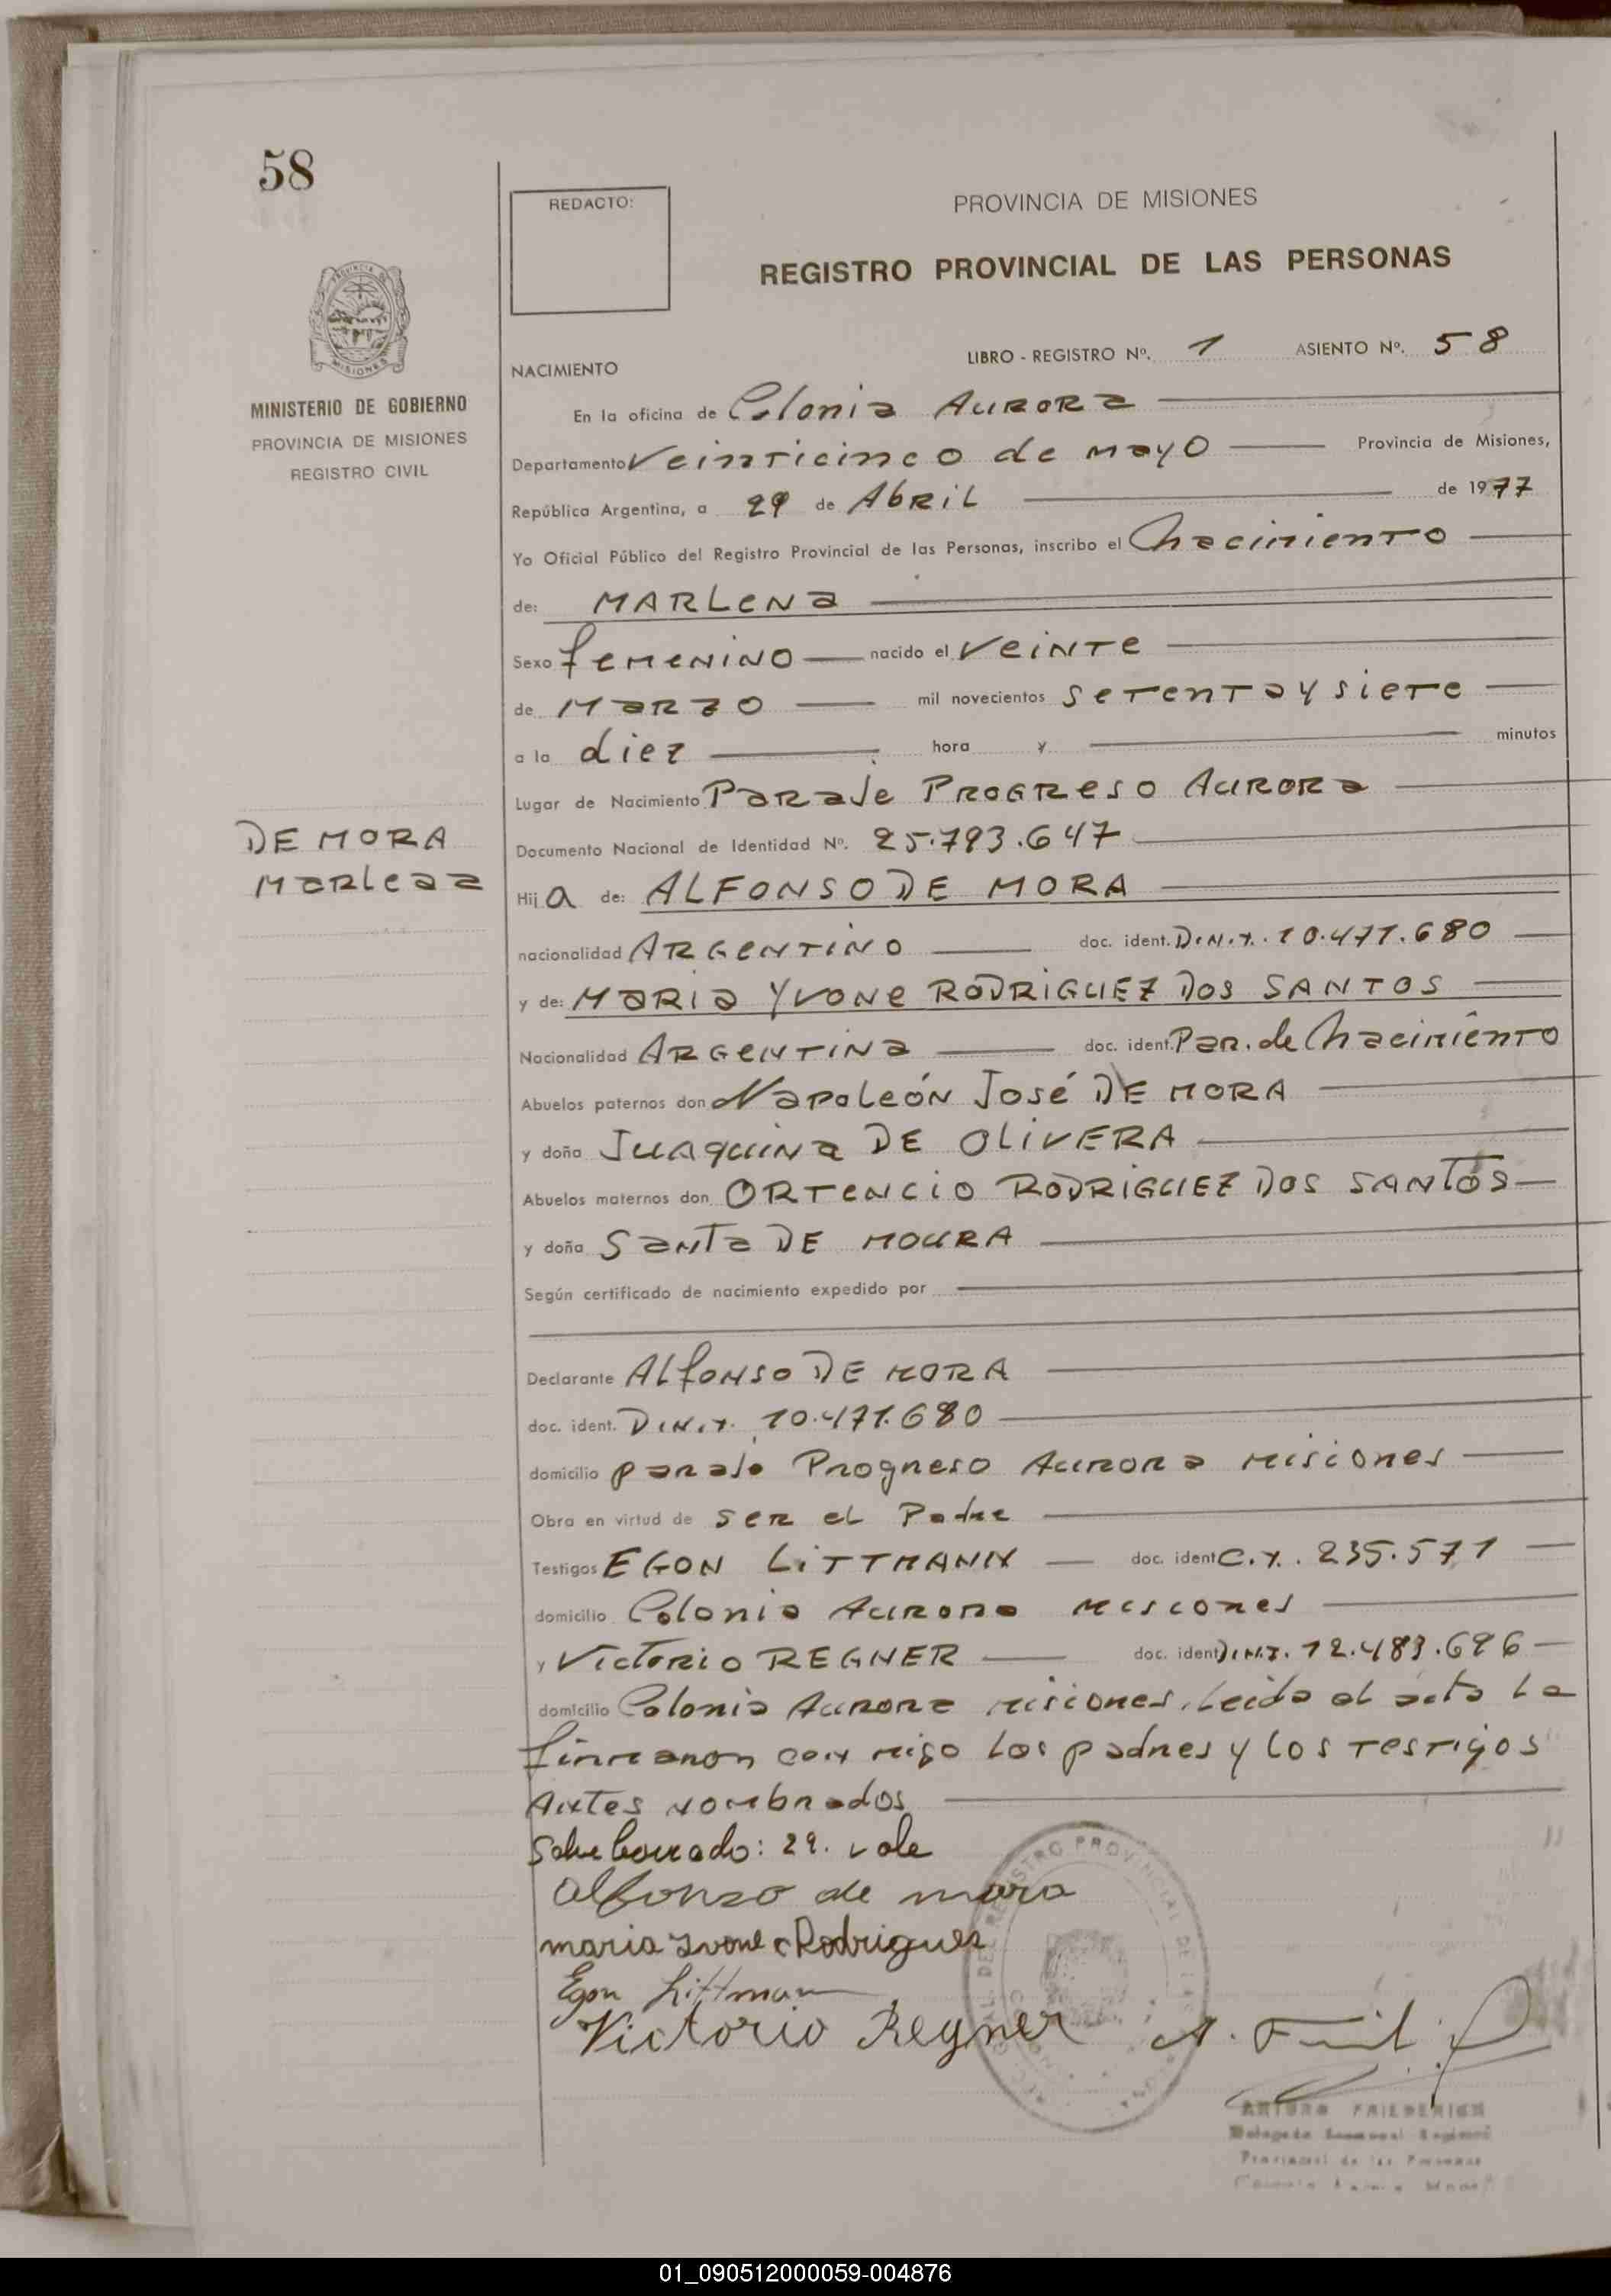 58
REDACTO:
PROVINCIA DE MISIONES
REGISTRO PROVINCIAL DE LAS PERSONAS
MINISTERIO DE GOBIERNO
PROVINCIA DE MISIONES
REGISTRO CIVIL
LIBRO - REGISTRO Nº. 1 ASIENTO Nº. 58
NACIMIENTO
En la oficina de Colonia Aurora
Departamento Veinticinco de mayo Provincia de Misiones,
República Argentina, a 29 de Abril de 1977
Yo Oficial Público del Registro Provincial de las Personas, inscribo el Nacimiento
de: MARLENA
Sexo femenino nacido el veinte
de Marzo mil novecientos setenta y siete
a la diez hora y minutos
Lugar de Nacimiento Paraje Progreso Aurora
DE MORA
Documento Nacional de Identidad Nº. 25.793.647
Hija de: ALFONSO DE MORA
nacionalidad Argentino doc. ident. D.N.I. 10.471.680
y de: Maria Yvone RODRIGUEZ DOS SANTOS
Nacionalidad Argentina doc. ident. Par. de Nacimiento
Abuelos paternos don Napoleón José DE MORA
y doña Juaquina DE OLIVERA
Abuelos maternos don ORTENCIO RODRIGUEZ DOS SANTOS
y doña Santa DE MOURA
Según certificado de nacimiento expedido por
Declarante Alfonso DE MORA
doc. ident. D.N.I. 10.471.680
domicilio paraje Progreso Aurora Misiones
Obra en virtud de ser el Padre
Testigos EGON LITTMANN doc. ident C.I. 235.571
domicilio Colonia Aurora Misiones
y Victorio REGNER doc. ident D.N.I. 12.483.696
domicilio Colonia Aurora Misiones. Leida el acta la
firmaron con migo los padres y los testigos
Antes nombrados
Sobre borrado: 29. vale
Alfonso de mora
maria Ivone Rodriguez
Egon Littmann
Victorio Regner
ARTURO FRIEDERICH
Provincial de las Personas
01_090512000059-004876